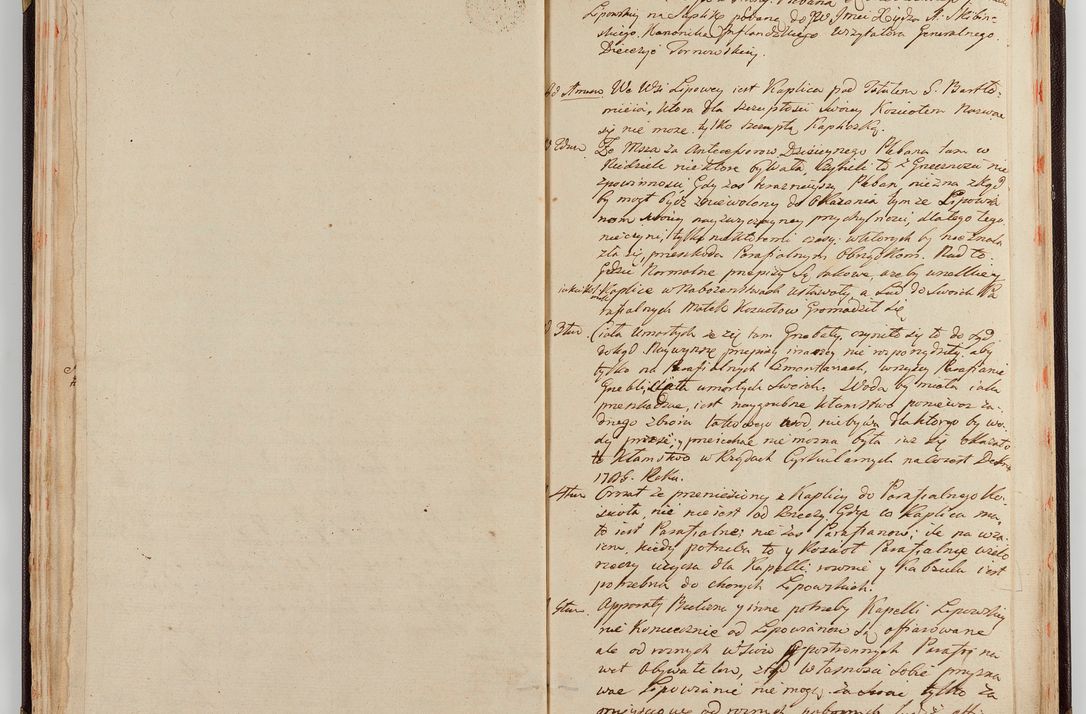 Lipowskiey na Suplike podaną do JW Jmci Xiędza A. Skibin-
skiego Kanonika Inflandzkiego Wizytatora Generalnego
Diecezyi Tarnowskiey
Ad Am̅u̅m̅ We Wsi Lipowey iest Kaplica pod Tytułem S. Bartło-
mieia, ktora dla szczupłosci swoiey Kosciołem nazwac
się nie moze tylko szczupłą Kapliczką.
2dum Ze Msza za Antecessorow Dzisieynego Plebana tam w
Niedziele niektore bywała, czynili to z Grzecznosci nie
zpowinnosci, Gdy zas terazneyszy Pleban nie zna zkąd
by mogł bydź zniewolony do okazania tymze Lipowia
nom swoiey nayzwyczayney przychylnosci, dlatego tego
nieczyni, tylko niektoremi czasy, w ktorych by nieznala
zła się przeszkoda Parafialnym Obrządkom. Nad to
Gdzie Normalne przepisy są takowe, azeby wszelkiey
Kaplice w Nabozenstwach ustawały, a Lud do swoich Pa
rafialnych Matek Kosciołow Gromadził się
3tium Ciała Umarłych ze się tam Grzebały, czyniło się to do tąd
dokąd Naywyzsze przepisy inaczey nie rozporządziły, aby
tylko na Parafialnych Cmentarzach, wszyscy Parafianie
Grzebli Ciała umarłych swoich. Woda by miała iaka
przeszkadzac, iest naygrubsze kłamstwo poniewaz ża-
dnego zbioru takowego wod niebywa dla ktorego by wo-
dy przeyść, y przeiechac nie mozna było iuz się okazało
to kłamstwo w Rządach Cyrkularnych
1786. Roku.
4tum Ornat ze przeniesiony z Kaplicy do Parafialnego Ko-
scioła nic nie iest od Rzeczy Gdyz co Kaplica ma,
to iest Parafialne; nie zas Parafianow; ile na wza-
iem, kiedy potrzeba to y Kosciół Parafialny wiele
rzeczy uzycza dla Kapelli, rownie y Kapsula iest
potrzebna do chorych Lipowskich.
5tum Apparaty Bielizna y inne potrzeby Kapelli Lipowskiey
nie koniecznie od Lipowianow są offiarowane
ale od roznych w Parafii na
wet Obywatelow, ztąd własnosci sobie przyzna
wac Lipowianie nie mogą, tylko za